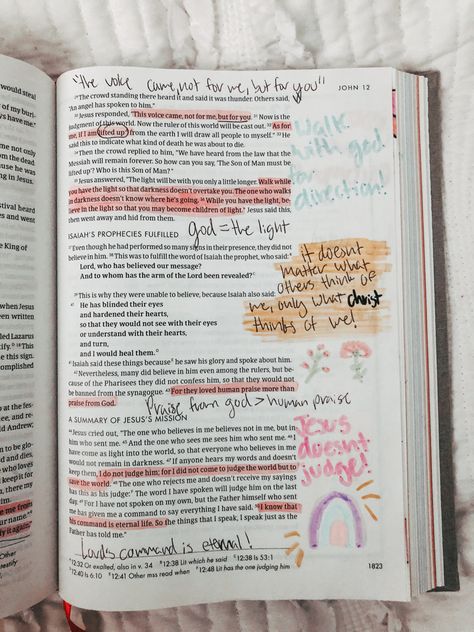 "the voice came, not for me, but for you"
JOHN 12
²⁹ The crowd standing there heard it and said it was thunder. Others said,
"An angel has spoken to him."
³⁰ Jesus responded, "This voice came, not for me, but for you. ³¹ Now is the
judgment of this world. Now the ruler of this world will be cast out. ³² As for
me, if I am lifted up from the earth I will draw all people to myself." ³³ He
said this to indicate what kind of death he was about to die.
³⁴ Then the crowd replied to him, "We have heard from the law that the
Messiah will remain forever. So how can you say, 'The Son of Man must be
lifted up'? Who is this Son of Man?"
³⁵ Jesus answered, "The light will be with you only a little longer. Walk while
you have the light so that darkness doesn't overtake you. The one who walks
in darkness doesn't know where he's going. ³⁶ While you have the light, be-
lieve in the light so that you may become children of light." Jesus said this,
then went away and hid from them.
Walk
with god
for
direction!
ISAIAH'S PROPHECIES FULFILLED
god = the light
³⁷ Even though he had performed so many signs in their presence, they did not
believe in him. ³⁸ This was to fulfill the word of Isaiah the prophet, who said:
Lord, who has believed our message?
And to whom has the arm of the Lord been revealed?
³⁹ This is why they were unable to believe, because Isaiah also said:
⁴⁰ He has blinded their eyes
and hardened their hearts,
so that they would not see with their eyes
or understand with their hearts,
and turn,
and I would heal them.
it doesnt
matter what
others think of
me, only what christ
thinks of me!
⁴¹ Isaiah said these things because he saw his glory and spoke about him.
⁴² Nevertheless, many did believe in him even among the rulers, but be-
cause of the Pharisees they did not confess him, so that they would not
be banned from the synagogue. ⁴³ For they loved human praise more than
praise from God.
Praise from god > human praise
A SUMMARY OF JESUS'S MISSION
⁴⁴ Jesus cried out, "The one who believes in me believes not in me, but in
him who sent me. ⁴⁵ And the one who sees me sees him who sent me. ⁴⁶ I
have come as light into the world, so that everyone who believes in me
would not remain in darkness. ⁴⁷ If anyone hears my words and doesn't
keep them, I do not judge him; for I did not come to judge the world but to
save the world. ⁴⁸ The one who rejects me and doesn't receive my sayings
has this as his judge: The word I have spoken will judge him on the last
day. ⁴⁹ For I have not spoken on my own, but the Father himself who sent
me has given me a command to say everything I have said. ⁵⁰ I know that
his command is eternal life. So the things that I speak, I speak just as the
Father has told me."
Jesus
doesnt
judge!
Lord's command is eternal!
12:32 Or exalted, also in v. 34 12:38 Lit who he said 12:38 Is 53:1
12:40 Is 6:10 12:41 Other mss read when 12:48 Lit has the one judging him
1823